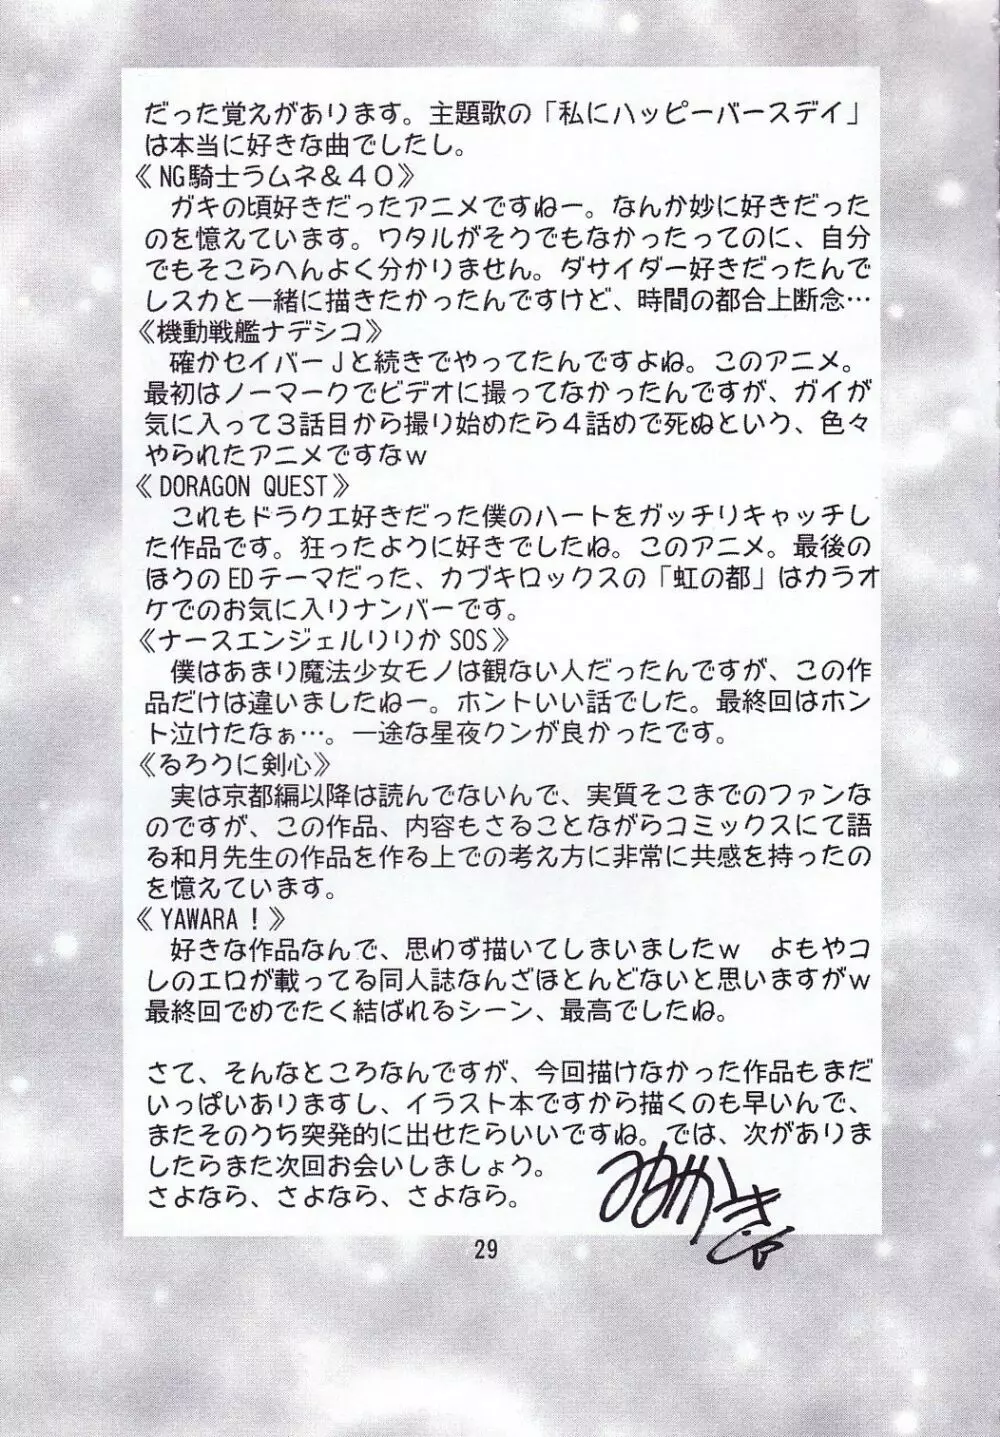 だった覚えがあります。主題歌の「私にハッピーバースデイ」
は本当に好きな曲でしたし。
《NG騎士ラムネ&40》
ガキの頃好きだったアニメですねー。なんか妙に好きだった
のを憶えています。ワタルがそうでもなかったってのに、自分
でもそこらへんよく分かりません。ダサイダー好きだったんで
レスカと一緒に描きたかったんですけど、時間の都合上断念…
《機動戦艦ナデシコ》
確かセイバーJと続きでやってたんですよね。このアニメ。
最初はノーマークでビデオに撮ってなかったんですが、ガイが
気に入って3話目から撮り始めたら4話めで死ぬという、色々
やられたアニメですなw
《DORAGON QUEST》
これもドラクエ好きだった僕のハートをガッチリキャッチし
た作品です。狂ったように好きでしたね。このアニメ。最後の
ほうのEDテーマだった、カブキロックスの「虹の都」はカラオ
ケでのお気に入りナンバーです。
《ナースエンジェルりりかSOS》
僕はあまり魔法少女モノは観ない人だったんですが、この作
品だけは違いましたねー。ホントいい話でした。最終回はホン
ト泣けたなぁ…。一途な星夜クンが良かったです。
《るろうに剣心》
実は京都編以降は読んでないんで、実質そこまでのファンな
のですが、この作品、内容もさることながらコミックスにて語
る和月先生の作品を作る上での考え方に非常に共感を持ったの
を憶えています。
《YAWARA!》
好きな作品なんで、思わず描いてしまいましたw よもやコ
レのエロが載ってる同人誌なんざほとんどないと思いますがw
最終回でめでたく結ばれるシーン、最高でしたね。
さて、そんなところなんですが、今回描けなかった作品もまだ
いっぱいありますし、イラスト本ですから描くのも早いんで、
またそのうち突発的に出せたらいいですね。では、次がありま
したらまた次回お会いしましょう。
さよなら、さよなら、さよなら。
29